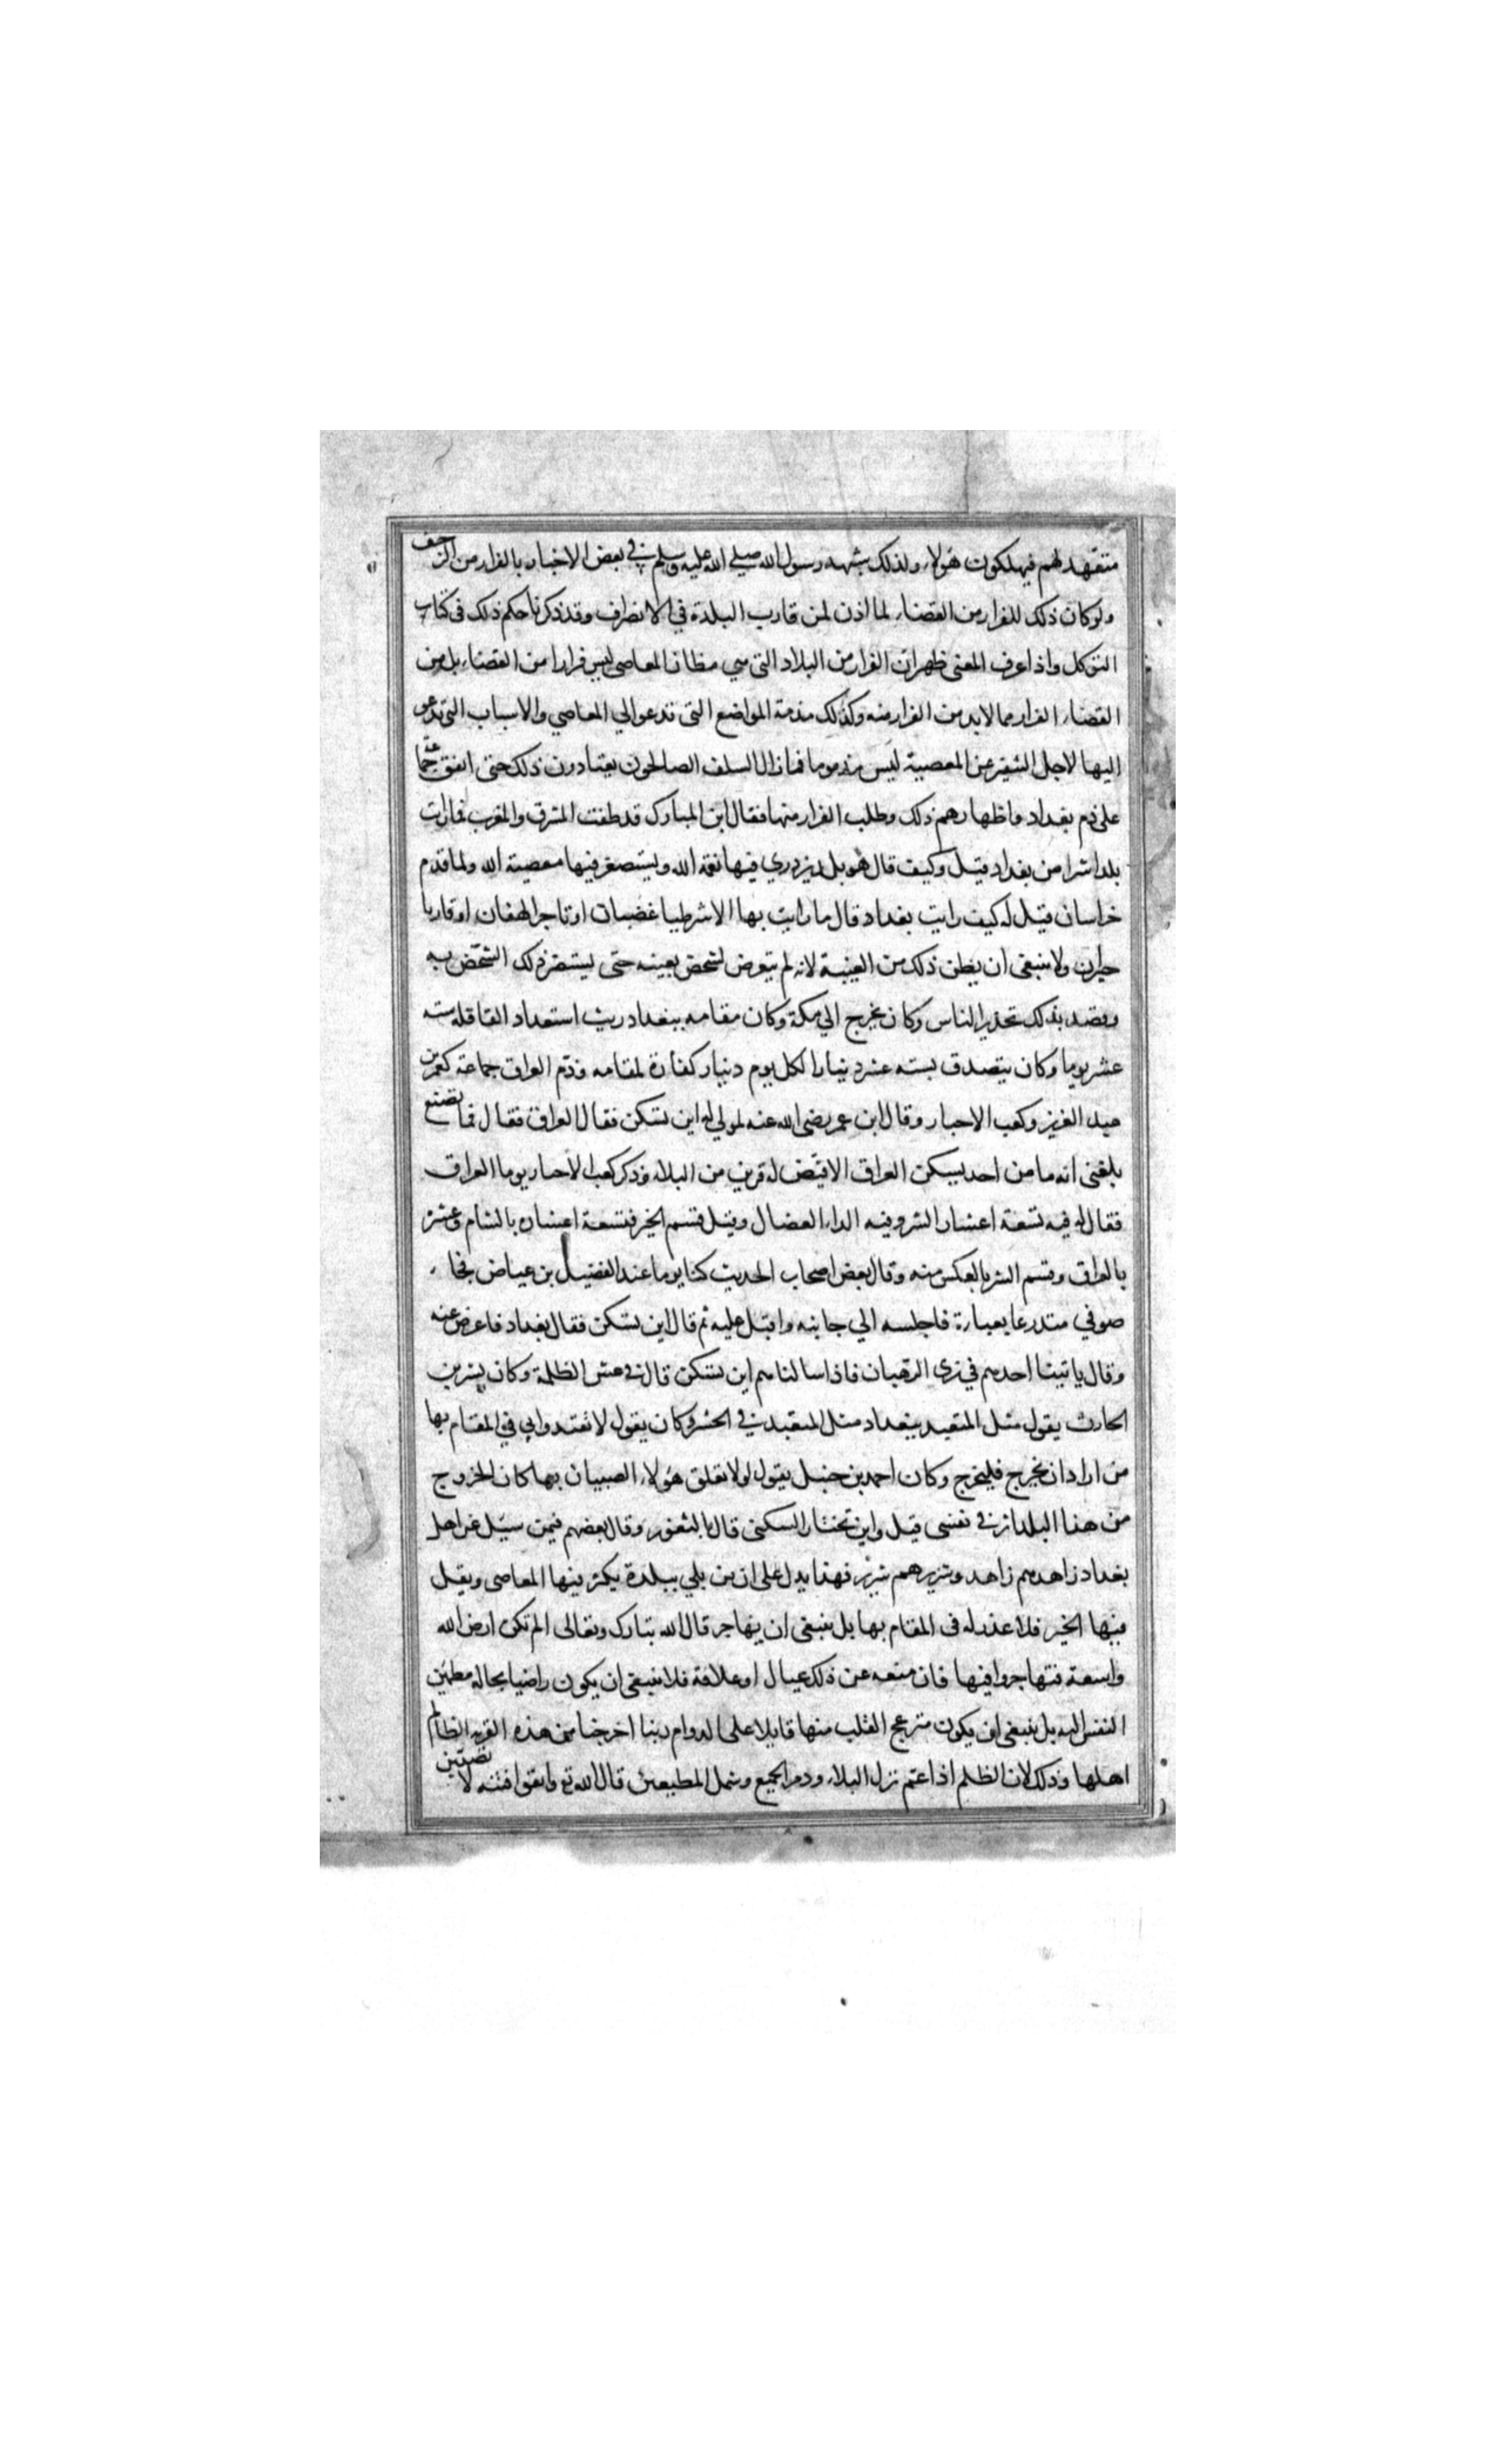 متعهد لهم فيهلكون هؤلاء ولذلك شبهه رسول الله صلى الله عليه وسلم في بعض الاخبار بالفرار من الزحف
ولو كان ذلك للفرار من القضاء لما اذن لمن قارب البلدة في الانصراف وقد ذكرنا حكم ذلك في كتاب
التوكل واذا عرف المعنى ظهر ان الفرار من البلاد التي هي مظان المعاصي ليس فرارا من القضاء بل من
القضاء الفرار مما لابد من الفرار منه وكذلك مذمة المواضع التي تدعو الي المعاصي والاسباب التي تدعو
اليها لاجل التنفير عن المعصية ليس مذموما فما زال السلف الصالحون يعتادون ذلك حتى اتفق جماعة
على ذم بغداد واظهارهم ذلك وطلب الفرار منها فقال ابن المبارك قد طفت المشرق والمغرب فما رايت
بلدا شرا من بغداد قيل وكيف قال هو بلد يزدري فيها نعمة الله ويستصغر فيها معصية الله ولما قدم
خراسان قيل له كيف رايت بغداد قال ما رايت بها الا شرطيا غضبان او تاجرا لهفان او قاريا
حيران ولا ينبغي ان يظن ذلك من الغيبة لانه لم يتعرض لشخص بعينه حتى يستضر ذلك الشخص به
وقصد بذلك تحذير الناس وكان يخرج الي مكة وكان مقامه ببغداد ريث استعداد القافلة ستة
عشر يوما وكان يتصدق بستة عشر دينارا لكل يوم دينار كفارة لمقامه وذم العراق جماعة كعمر بن
عبد العزيز وكعب الاحبار وقال ابن عمر رضى الله عنه لمولى له اين تسكن فقال العراق فقال فما تصنع
بلغني انه ما من احد يسكن العراق الا قيض له قرين من البلاء وذكر كعب الاحبار يوما العراق
فقال له فيه تسعة اعشار الشر وفيه الداء العضال وقيل قسم الخير فتسعة اعشاره بالشام وعشر
بالعراق وقسم الشر بالعكس منه وقال بعض اصحاب الحديث كنا يوما عند الفضيل بن عياض فجاء
صوفي متدرعا بعباءة فاجلسه الي جانبه واقبل عليه ثم قال اين تسكن فقال بغداد فاعرض عنه
وقال ياتينا احدهم في زى الرهبان فاذا سالناهم اين تسكن قال في عش الظلمة وكان بشر بن
الحارث يقول مثل المتعبد ببغداد مثل المتعبد في الحش وكان يقول لا تقتدوا بي في المقام بها
من اراد ان يخرج فليخرج وكان احمد بن حنبل يقول لولا تعلق هؤلاء الصبيان بها كان الخروج
من هذا البلد اثر في نفسى قيل واين تختار السكنى قال بالثغور وقال بعضهم فيمن سيل عن اهل
بغداد زاهدهم زاهد وشريرهم شرير فهذا يدل على ان من بلي ببلدة يكثر فيها المعاصى ويقل
فيها الخير فلا عذر له في المقام بها بل ينبغى ان يهاجر قال الله تبارك وتعالى الم تكن ارض الله
واسعة فتهاجروا فيها فان منعه عن ذلك عيال او علاقة فلا ينبغى ان يكون راضيا بحاله مطمئن
النفس اليه بل ينبغى ان يكون منزعج القلب منها قايلا على الدوام ربنا اخرجنا من هذه القرية الظالم
اهلها وذلك لان الظلم اذا عم نزل البلاء ودمر الجميع وشمل المطيعين قال الله تع واتقوا فتنة لا تصيبن